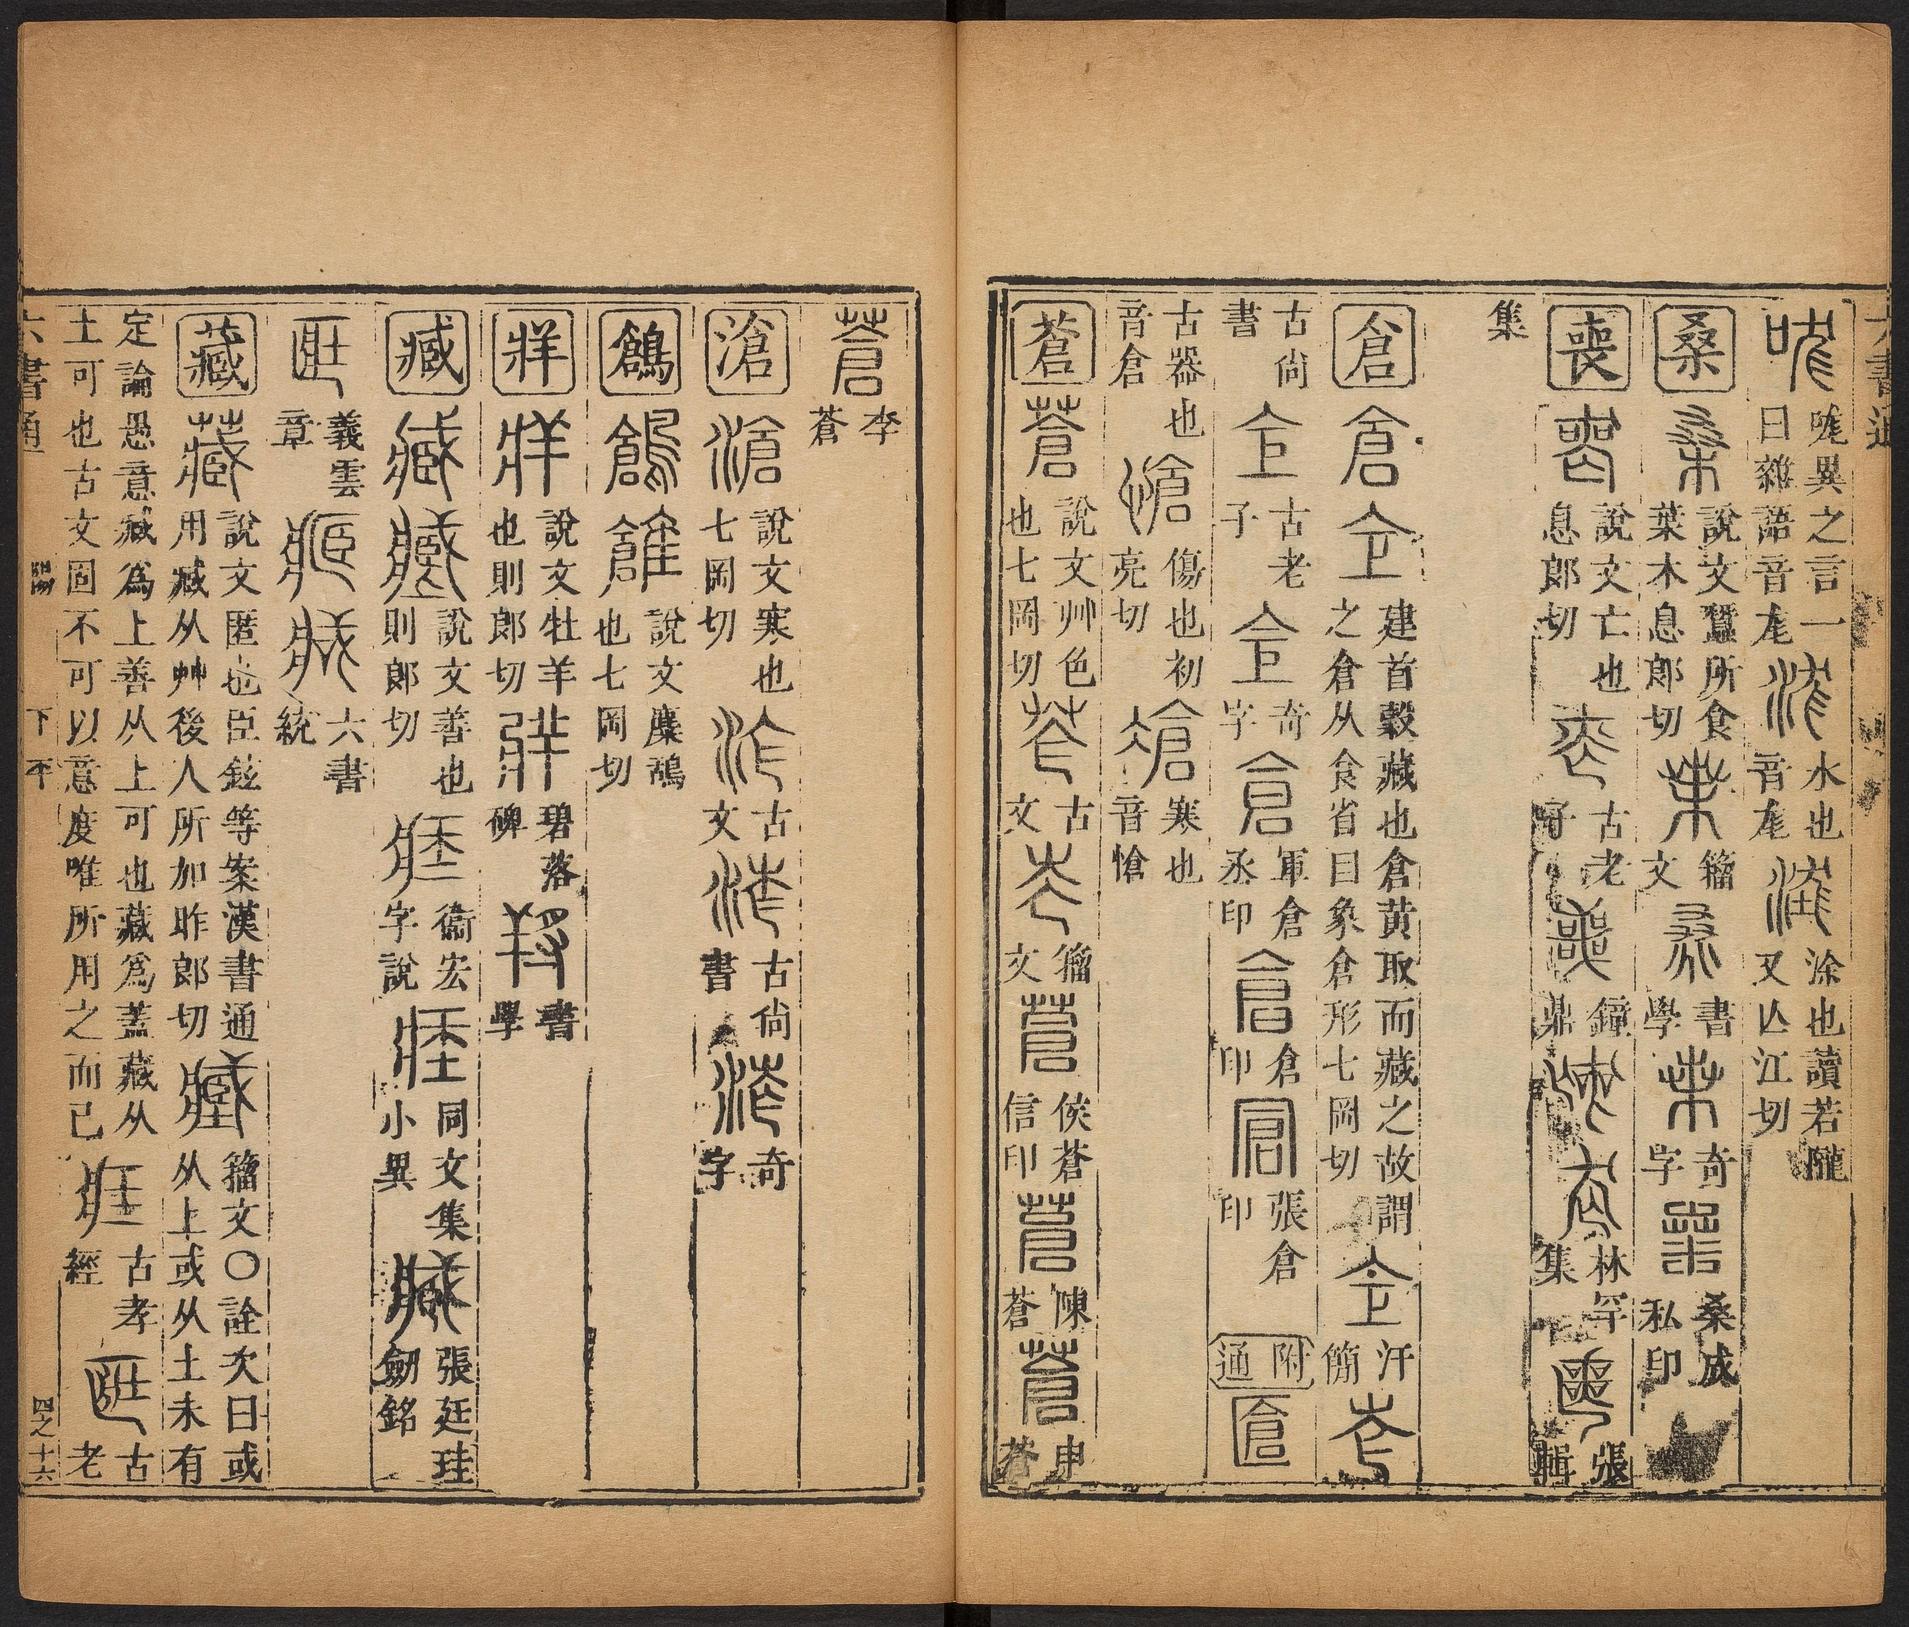 六書通
哤異之言一
曰雜語音尨
水也
音尨
涂也讀若隴
又亾江切
桑
說文蠶所食
葉木息郎切
籀
文
書
學
奇
字
桑成
私印
喪
說文亡也
息郎切
古老
子
鐘
鼎
林罕
集
張
輯
集
倉
建首穀藏也倉黃取而藏之故謂
之倉从食省曰象倉形七岡切
汗
簡
古尚
書
古老
子
奇
字
軍倉
丞印
倉
印
張倉
印
附
通
古器也
音倉
傷也初
亮切
寒也
音愴
蒼
說文艸色
也七岡切
古
文
籀
文
侯蒼
信印
陳
蒼
申
蒼
李
蒼
滄
說文寒也
七岡切
古
文
古尚
書
奇
字
鶬
說文麋鴰
也七岡切
牂
說文牡羊
也則郎切
碧落
碑
書
學
臧
說文善也
則郎切
衞宏
字說
同文集
小異
張廷珪
劒銘
義雲
章
六書
統
藏
說文匿也臣鉉等案漢書通
用臧从艸後人所加昨郎切
籀文〇詮次曰或
从上或从土未有
定論愚意臧爲上善从上可也藏爲蓋藏从
土可也古文固不可以意度唯所用之而已
古孝
經
古
老
六書通
下平
四之十六